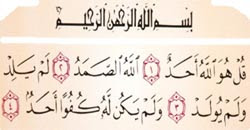 بِسْمِ اللَّهِ الرَّحْمَٰنِ الرَّحِيمِ
قُلْ هُوَ اللَّهُ أَحَدٌ ١ اللَّهُ الصَّمَدُ ٢ لَمْ يَلِدْ
وَلَمْ يُولَدْ ٣ وَلَمْ يَكُن لَّهُ كُفُوًا أَحَدٌ ٤